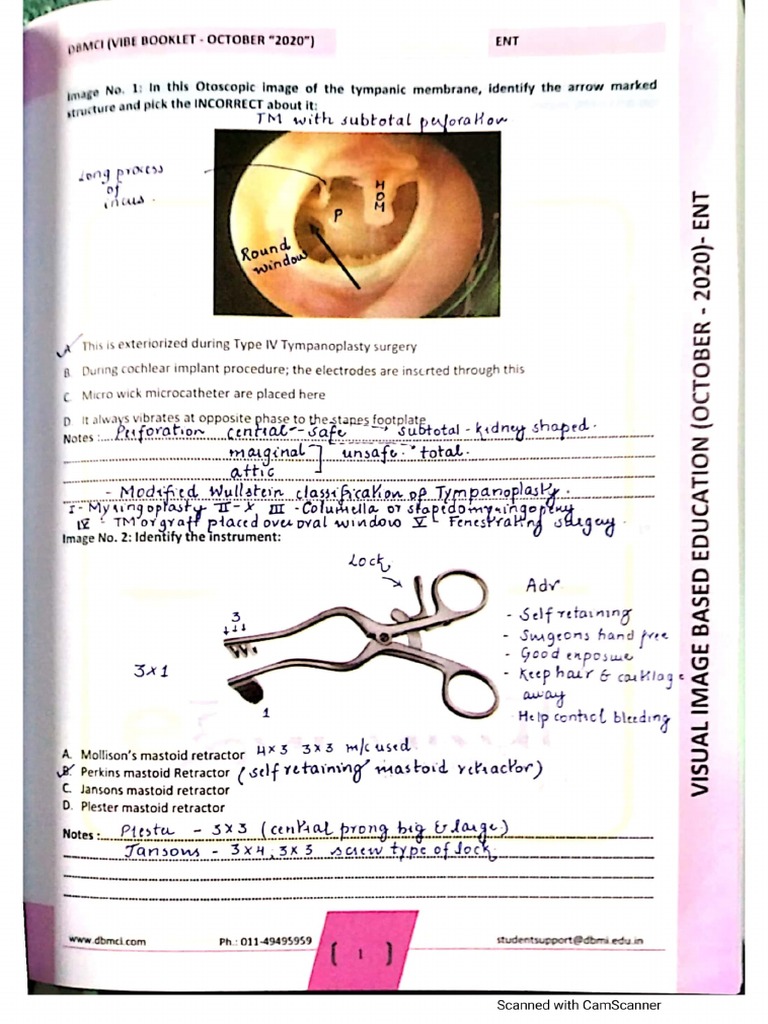 DBMCI (VIBE BOOKLET - OCTOBER "2020")
ENT
Image No. 1: In this Otoscopic image of the tympanic membrane, identify the arrow marked
structure and pick the INCORRECT about it:
TM with subtotal perforation
Long process
of
incus.
H
O
M
P
Round
window
A This is exteriorized during Type IV Tympanoplasty surgery
B. During cochlear implant procedure; the electrodes are inserted through this
C. Micro wick microcatheter are placed here
D. It always vibrates at opposite phase to the stapes footplate
Notes : Perforation central - safe → subtotal - kidney shaped.
marginal ] unsafe. total.
attic
- Modified Wullstein classification of Tympanoplasty.
I - Myringoplasty II - X III - Columella or stapedomyringopexy
IV - TM or graft placed over oval window V - Fenestrating surgery.
Image No. 2: Identify the instrument:
Lock
3
3x1
1
Adv
- Self retaining
- Surgeons hand free
- Good exposure
- Keep hair & cartilage
away
Help control bleeding
A. Mollison's mastoid retractor 4x3 3x3 m/c used
B. Perkins mastoid Retractor (self retaining mastoid retractor)
C. Jansons mastoid retractor
D. Plester mastoid retractor
Notes : Plester - 3x3 (central prong big & large)
Jansons - 3x4, 3x3 screw type of lock
www.dbmci.com
Ph.: 011-49495959
[ 1 ]
studentsupport@dbmi.edu.in
VISUAL IMAGE BASED EDUCATION (OCTOBER - 2020)- ENT
Scanned with CamScanner